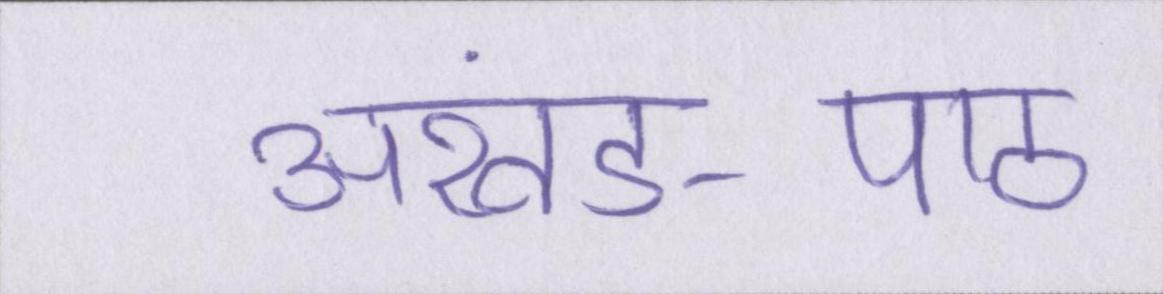 अखंड- पाठ